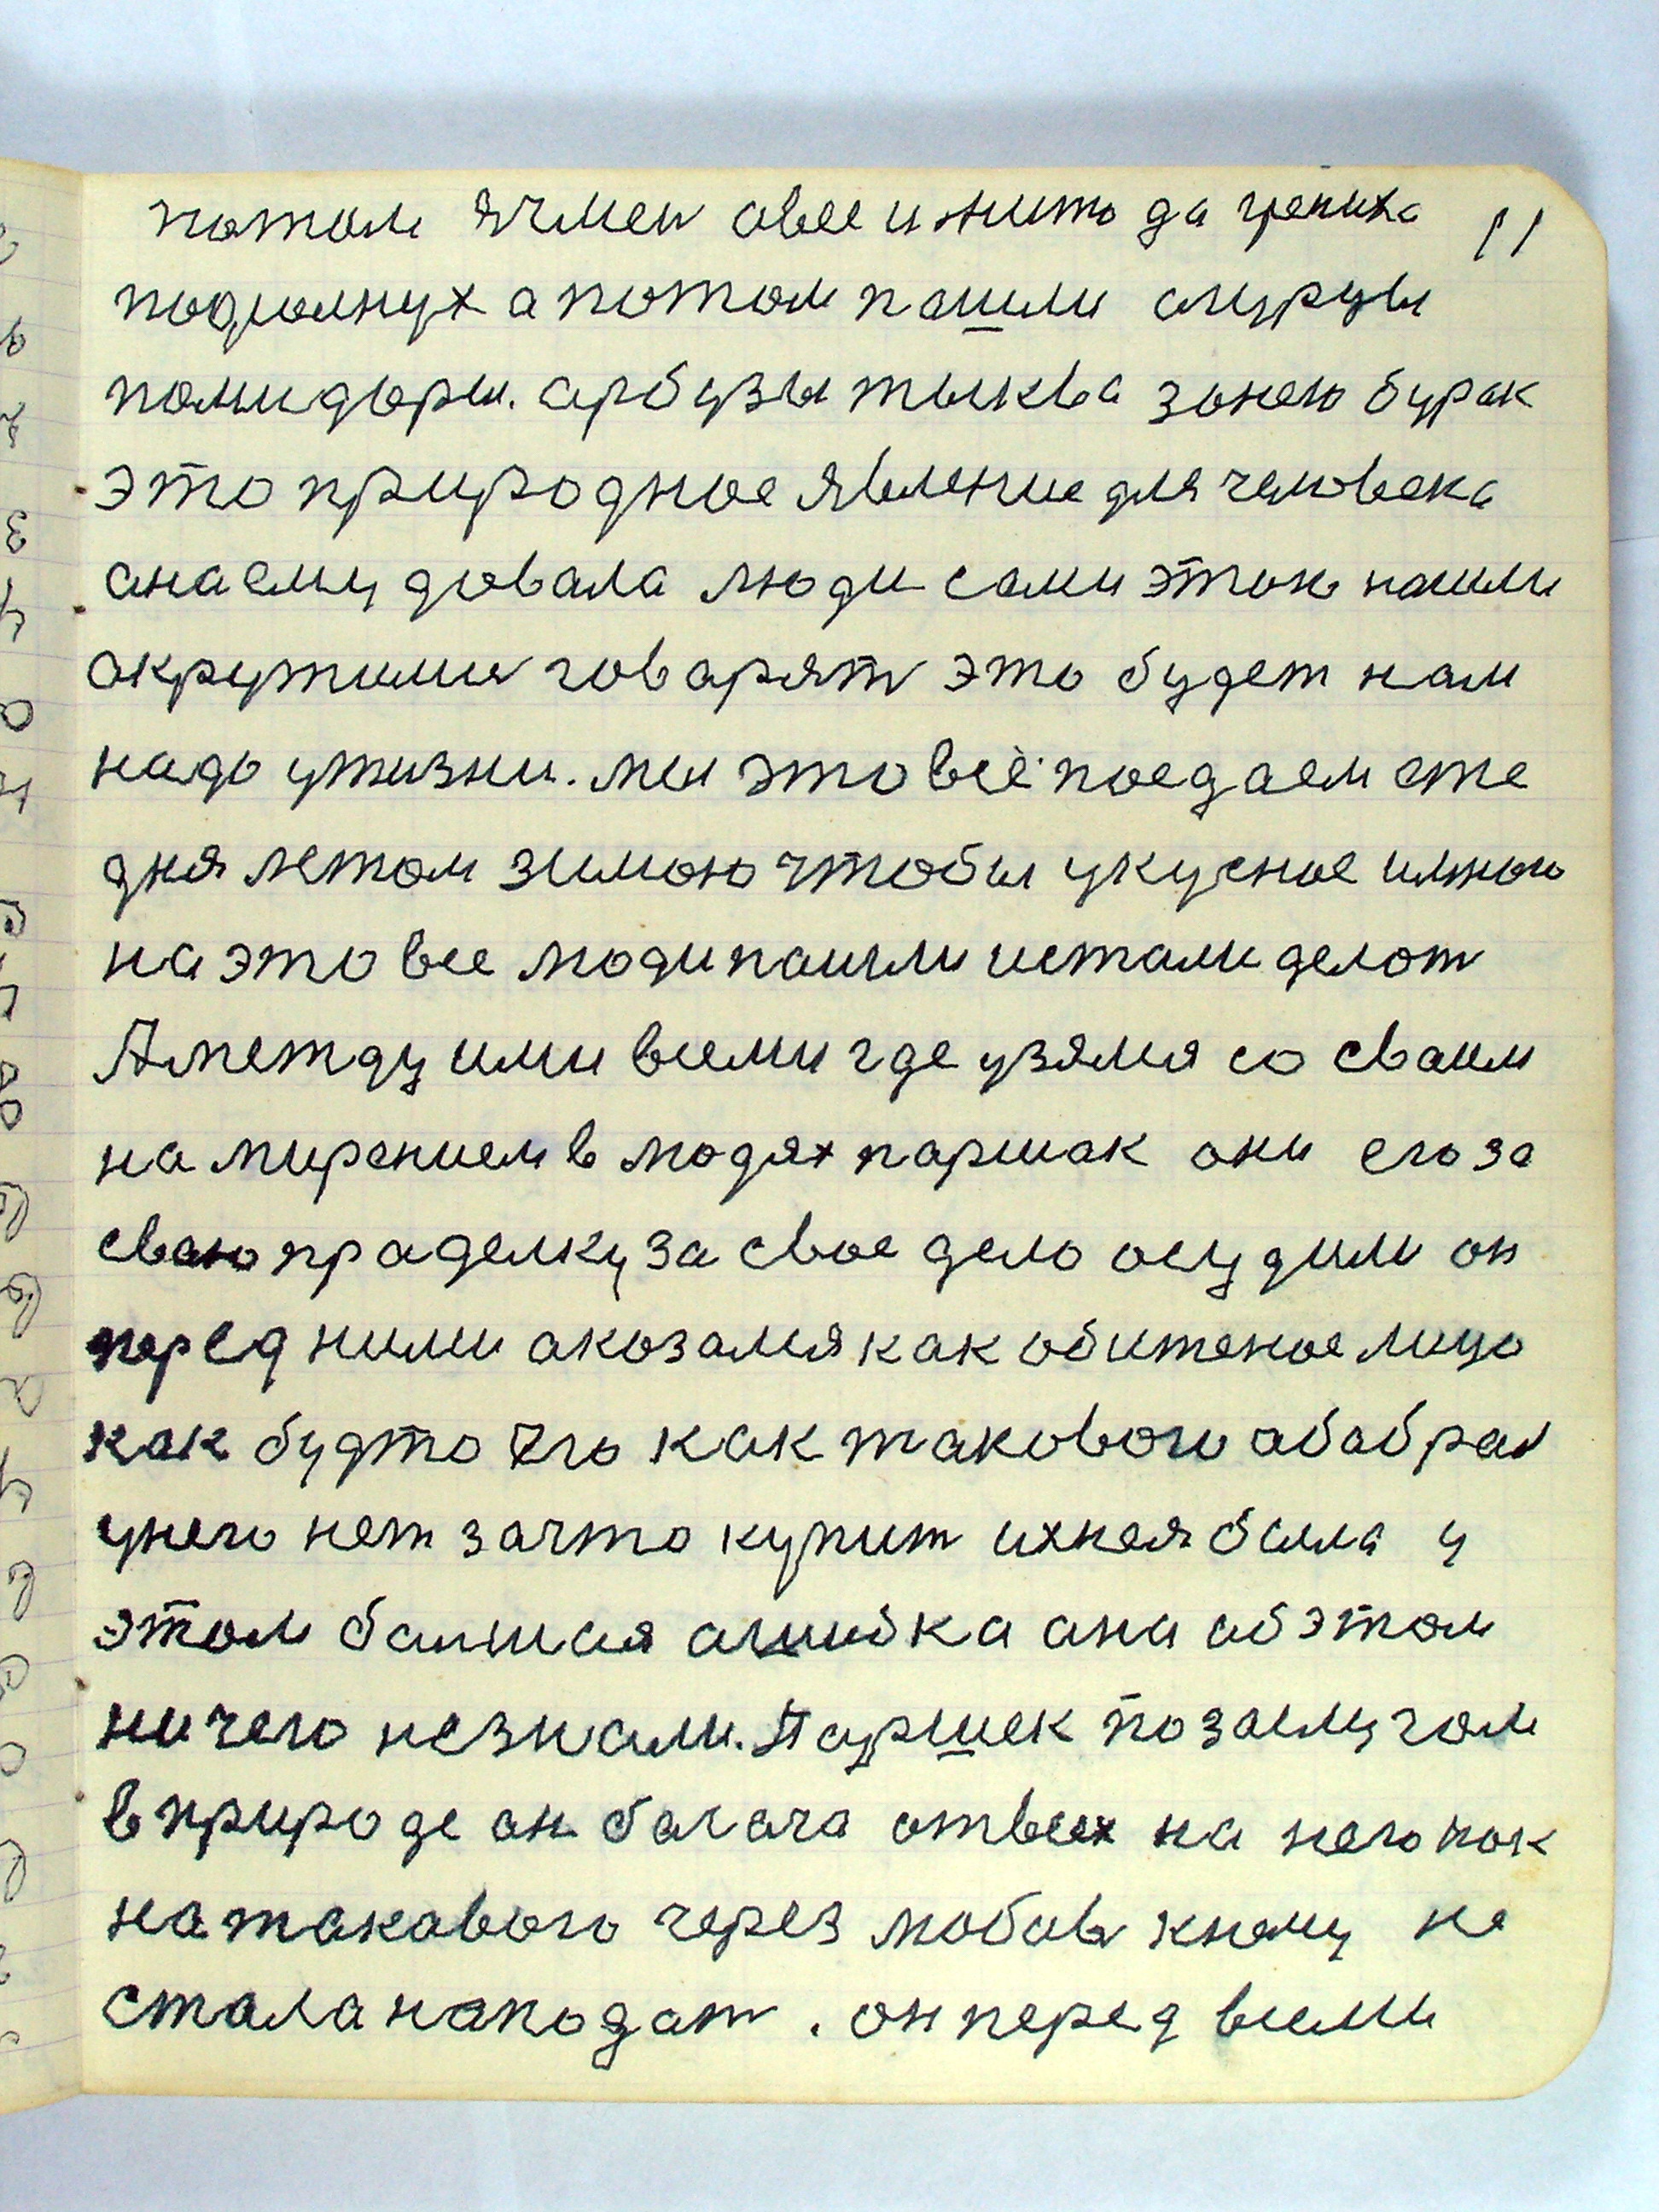 потом ячмен овес и жито да гречиха 11
подсолнух а потом пошли огурцы
помидоры. арбузы тыква зонею бурак
это природное явление для человека
она ему довала люди сами этого нашли
окружили говарят это будет нам
надо ужизни. мы это всё поедаем еже
дня летом зимою чтобы укусное имного
на это все люди пошли истали делот
А между ими всеми где узялся со сваим
намирением в людях паршак они его за
сваю праделку за свое дело осудили он
перед ними оказался как обиженое лицо
как будто его как такового абабрал
унего нет зачто купит ихнея была у
этом балшая ашибка они об этом
ничего незнали. Паршек по заслугам
в природе он багача отвсех на него как
на такавого через любовь кнему не
стала нападат. он перед всеми